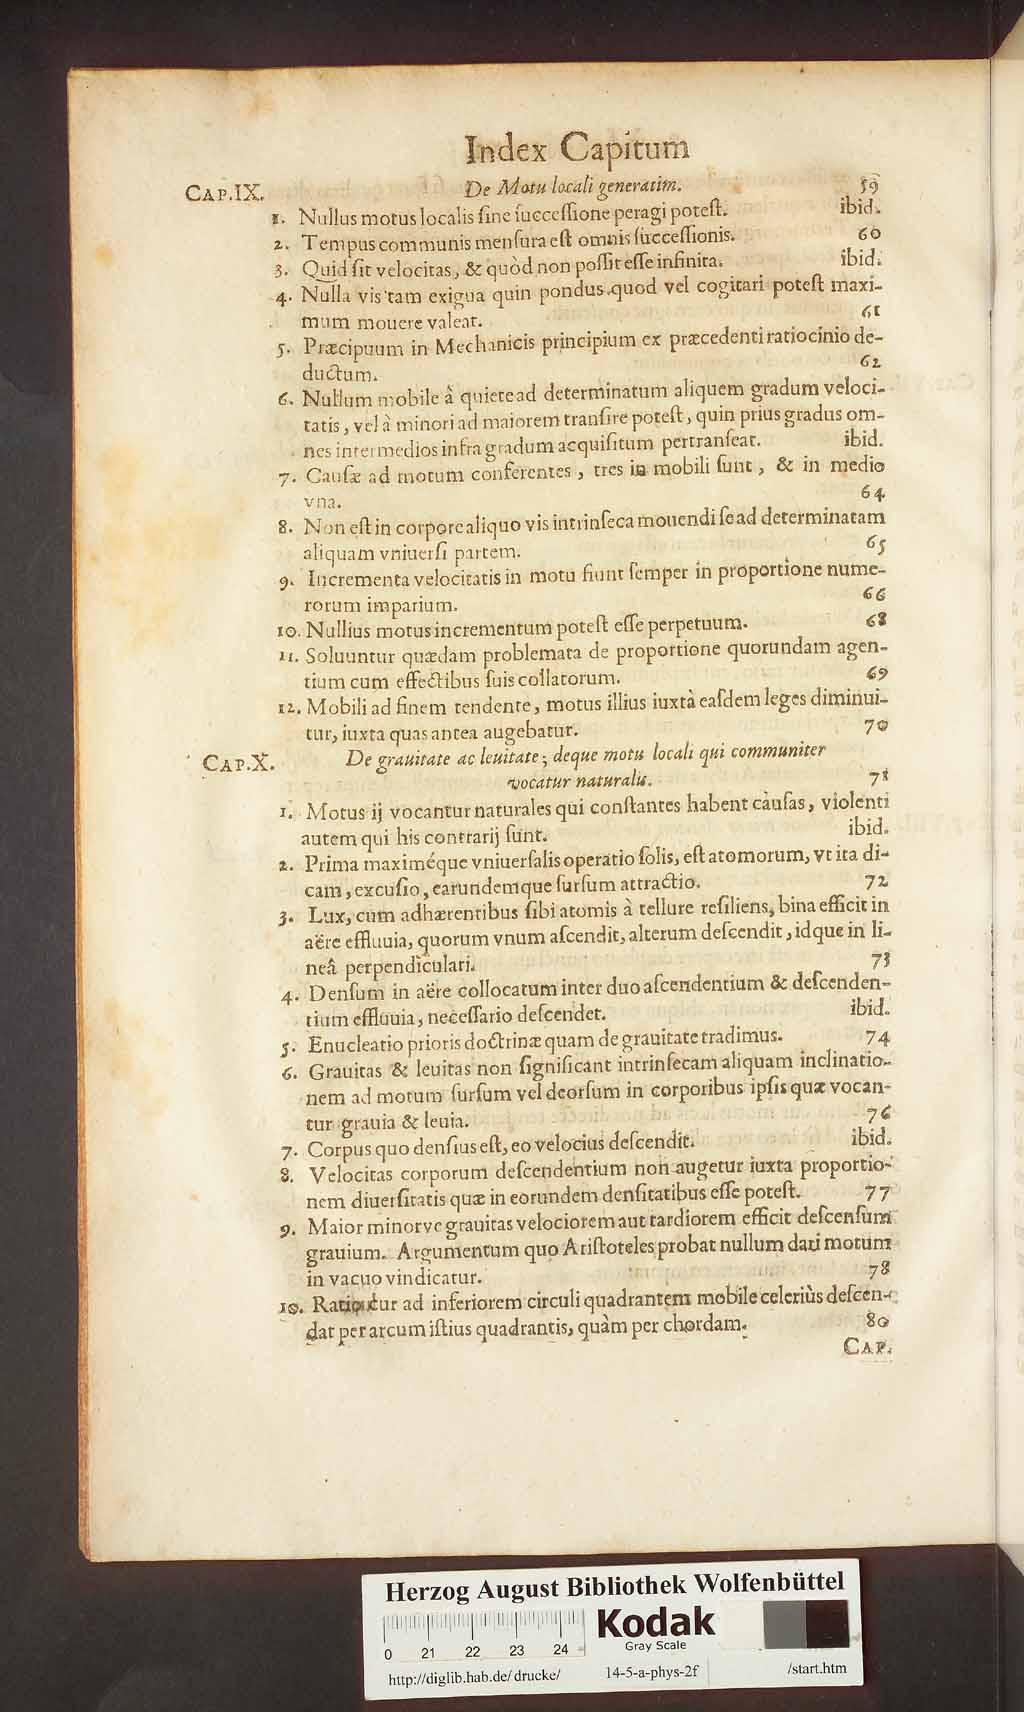 Index Capitum
CAP.IX. De Motu locali generatim. 59
1. Nullus motus localis ſine ſucceſſione peragi poteſt. ibid.
2. Tempus communis menſura eſt omnis ſucceſſionis. 60
3. Quid ſit velocitas, & quòd non poſſit eſſe infinita. ibid.
4. Nulla vis tam exigua quin pondus quod vel cogitari poteſt maxi-
mum mouere valeat. 61
5. Præcipuum in Mechanicis principium ex præcedenti ratiocinio de-
ductum. 62
6. Nullum mobile â quiete ad determinatum aliquem gradum veloci-
tatis, vel à minori ad maiorem tranſire poteſt, quin prius gradus om-
nes intermedios infra gradum acquiſitum pertranſeat. ibid.
7. Cauſæ ad motum conferentes, tres in mobili ſunt, & in medio
vna. 64
8. Non eſt in corpore aliquo vis intrinſeca mouendi ſe ad determinatam
aliquam vniuerſi partem. 65
9. Incrementa velocitatis in motu fiunt ſemper in proportione nume-
rorum imparium. 66
10. Nullius motus incrementum poteſt eſſe perpetuum. 68
11. Soluuntur quædam problemata de proportione quorundam agen-
tium cum effectibus ſuis collatorum. 69
12. Mobili ad finem tendente, motus illius iuxtà eaſdem leges diminui-
tur, iuxta quas antea augebatur. 70
CAP.X. De grauitate ac leuitate; deque motu locali qui communiter
vocatur naturalis. 71
1. Motus ij vocantur naturales qui conſtantes habent cauſas, violenti
autem qui his contrarij ſunt. ibid.
2. Prima maximéque vniuerſalis operatio ſolis, eſt atomorum, vt ita di-
cam, excuſio, earundemque ſurſum attractio. 72
3. Lux, cum adhærentibus ſibi atomis à tellure reſiliens, bina efficit in
aëre effluuia, quorum vnum aſcendit, alterum deſcendit, idque in li-
neâ perpendiculari. 73
4. Denſum in aëre collocatum inter duo aſcendentium & deſcenden-
tium effluuia, neceſſario deſcendet. ibid.
5. Enucleatio prioris doctrinæ quam de grauitate tradimus. 74
6. Grauitas & leuitas non ſignificant intrinſecam aliquam inclinatio-
nem ad motum ſurſum vel deorſum in corporibus ipſis quæ vocan-
tur grauia & leuia. 76
7. Corpus quo denſius eſt, eo velocius deſcendit. ibid.
8. Velocitas corporum deſcendentium non augetur iuxta proportio-
nem diuerſitatis quæ in eorundem denſitatibus eſſe poteſt. 77
9. Maior minorve grauitas velociorem aut tardiorem efficit deſcenſum
grauium. Argumentum quo Ariſtoteles probat nullum dari motum
in vacuo vindicatur. 78
10. ad inferiorem circuli quadrantem mobile celeriùs deſcen-
dat per arcum iſtius quadrantis, quàm per chordam. 80
CAP.
Herzog August Bibliothek Wolfenbüttel
0 21 22 23 24
Kodak
Gray Scale
http://diglib.hab.de/drucke/ 14-5-a-phys-2f /start.htm